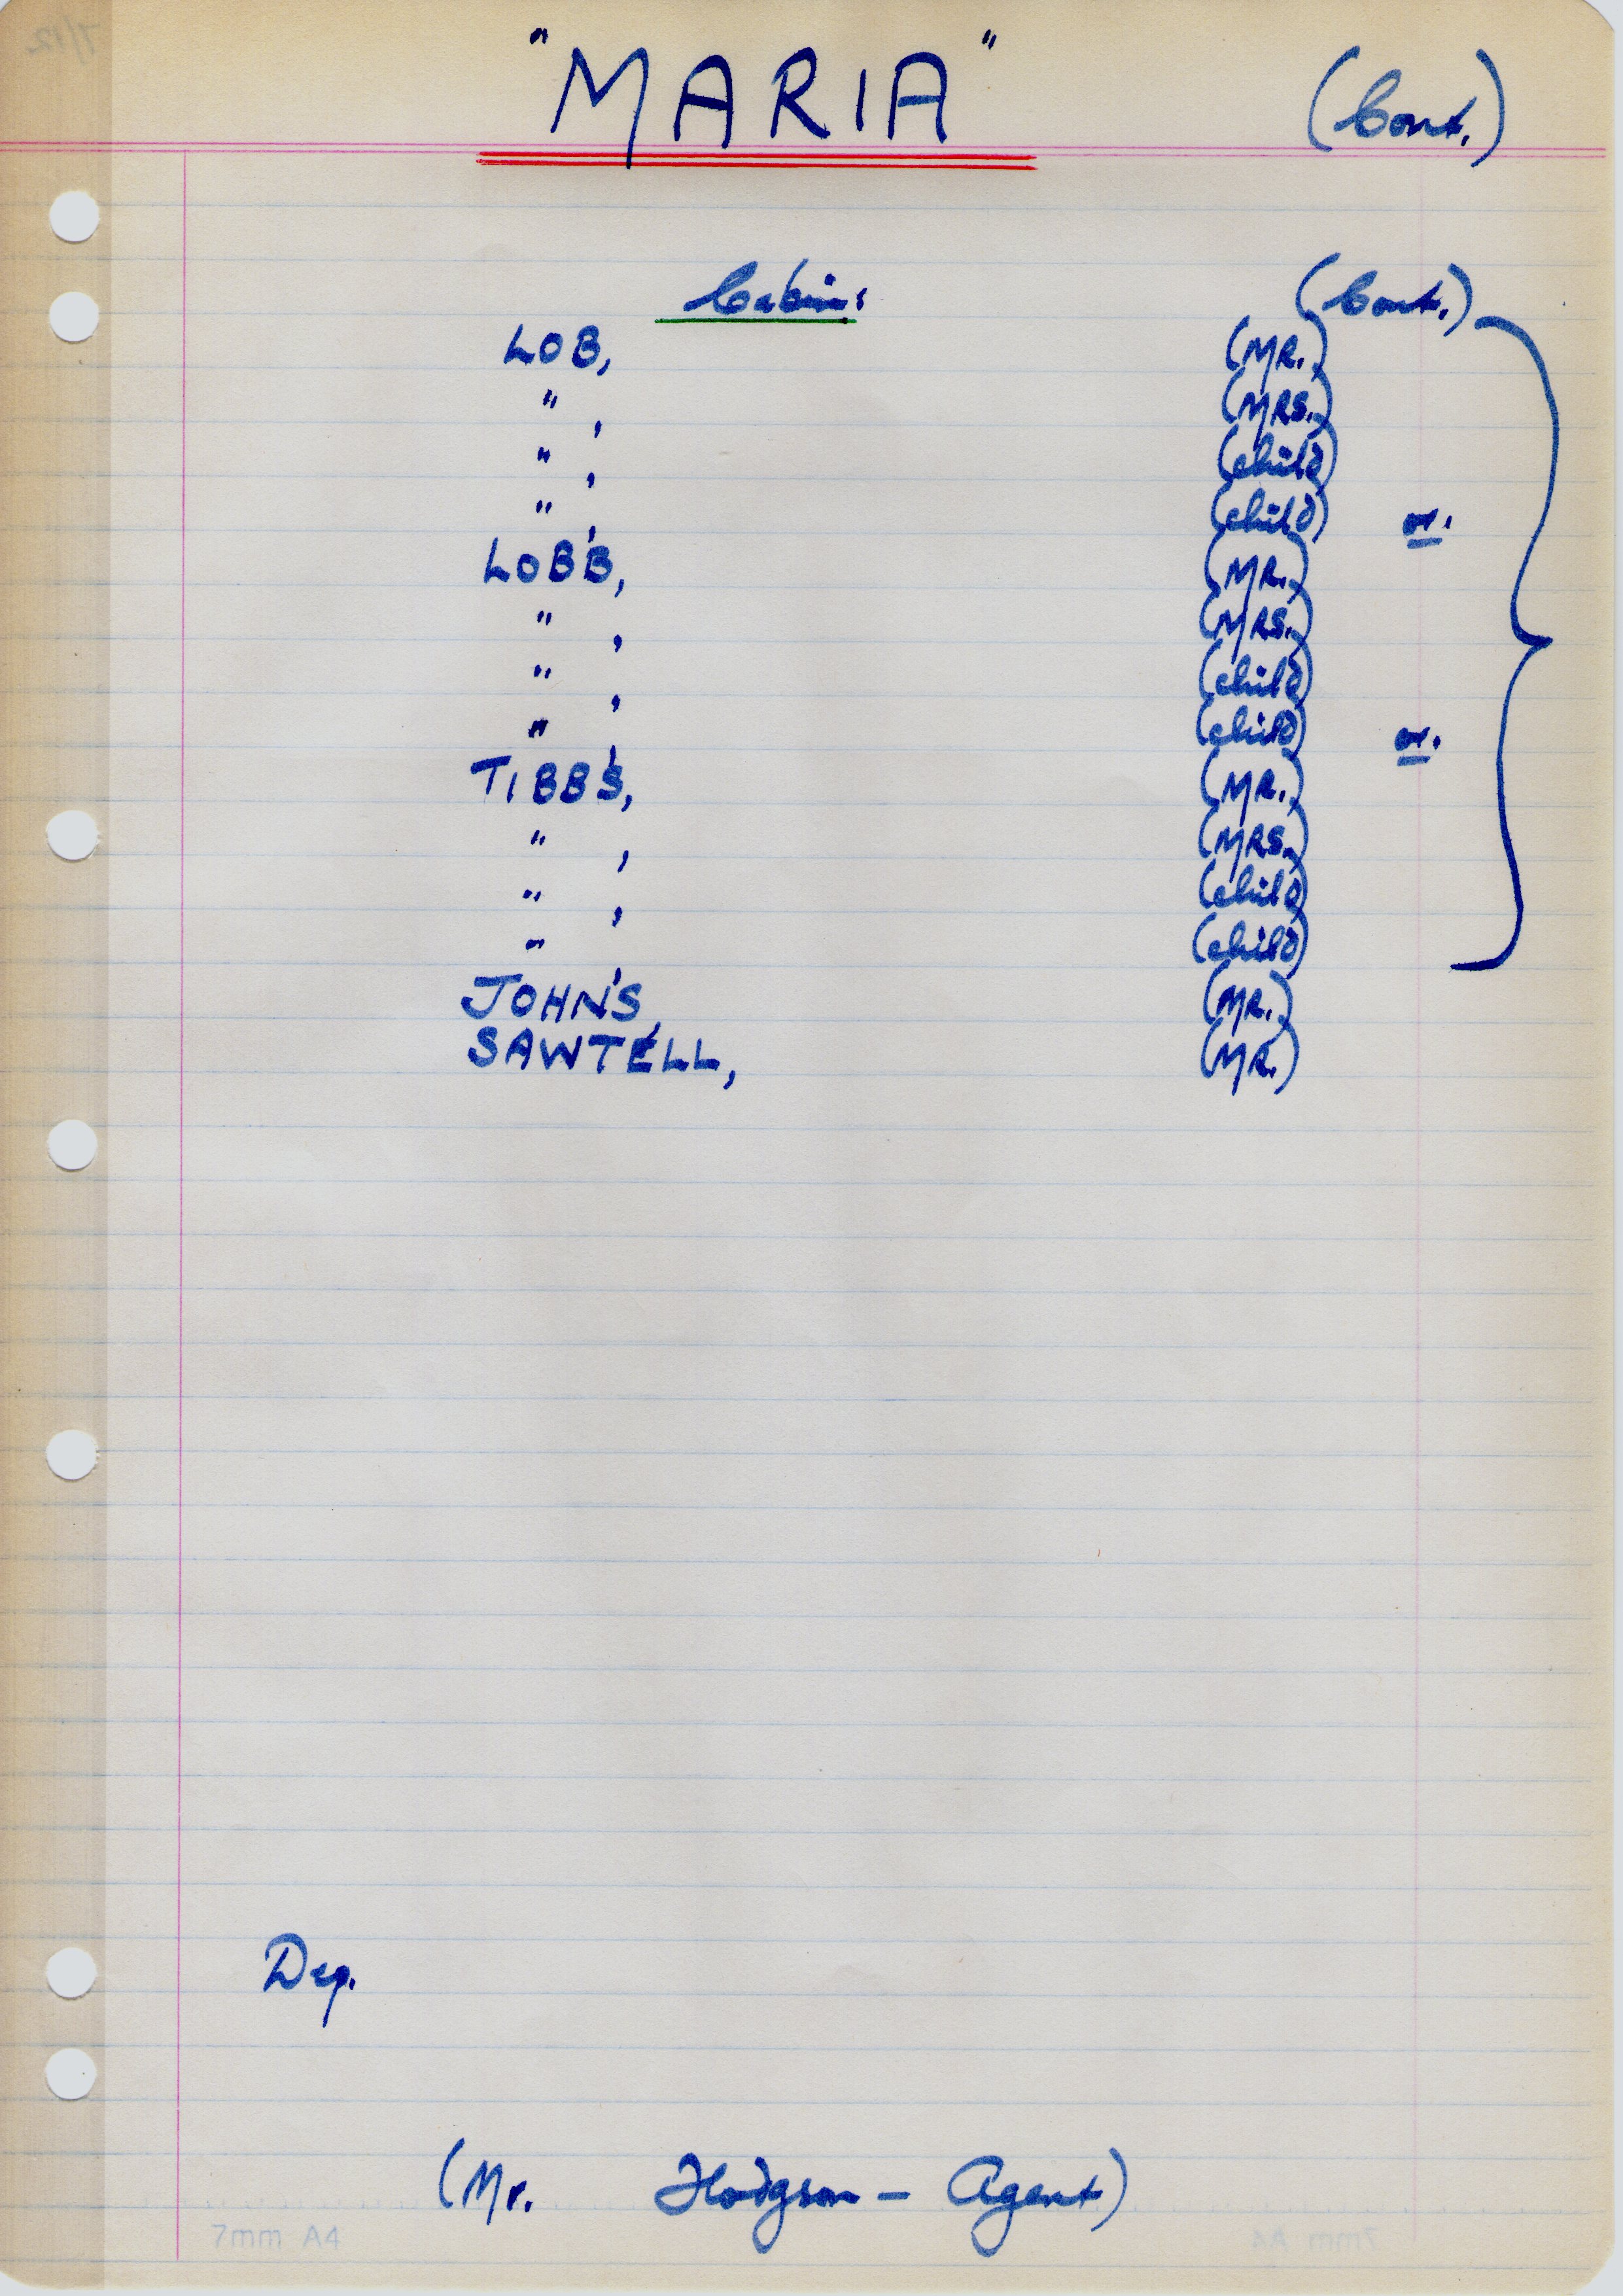 "MARIA" (Cont.)
Cabin: (Cont.)
LOB, (MR.)
" , (MRS.)
" , (child)
" , (child) or.
LOBB, (MR.)
" , (MRS.)
" , (child)
" , (child) or.
TIBBS, (MR.)
" , (MRS.)
" , (child)
" , (child)
JOHNS, (MR.)
SAWTELL, (MR.)
Dep.
(Mr. Hodgson - Agent)
7mm A4